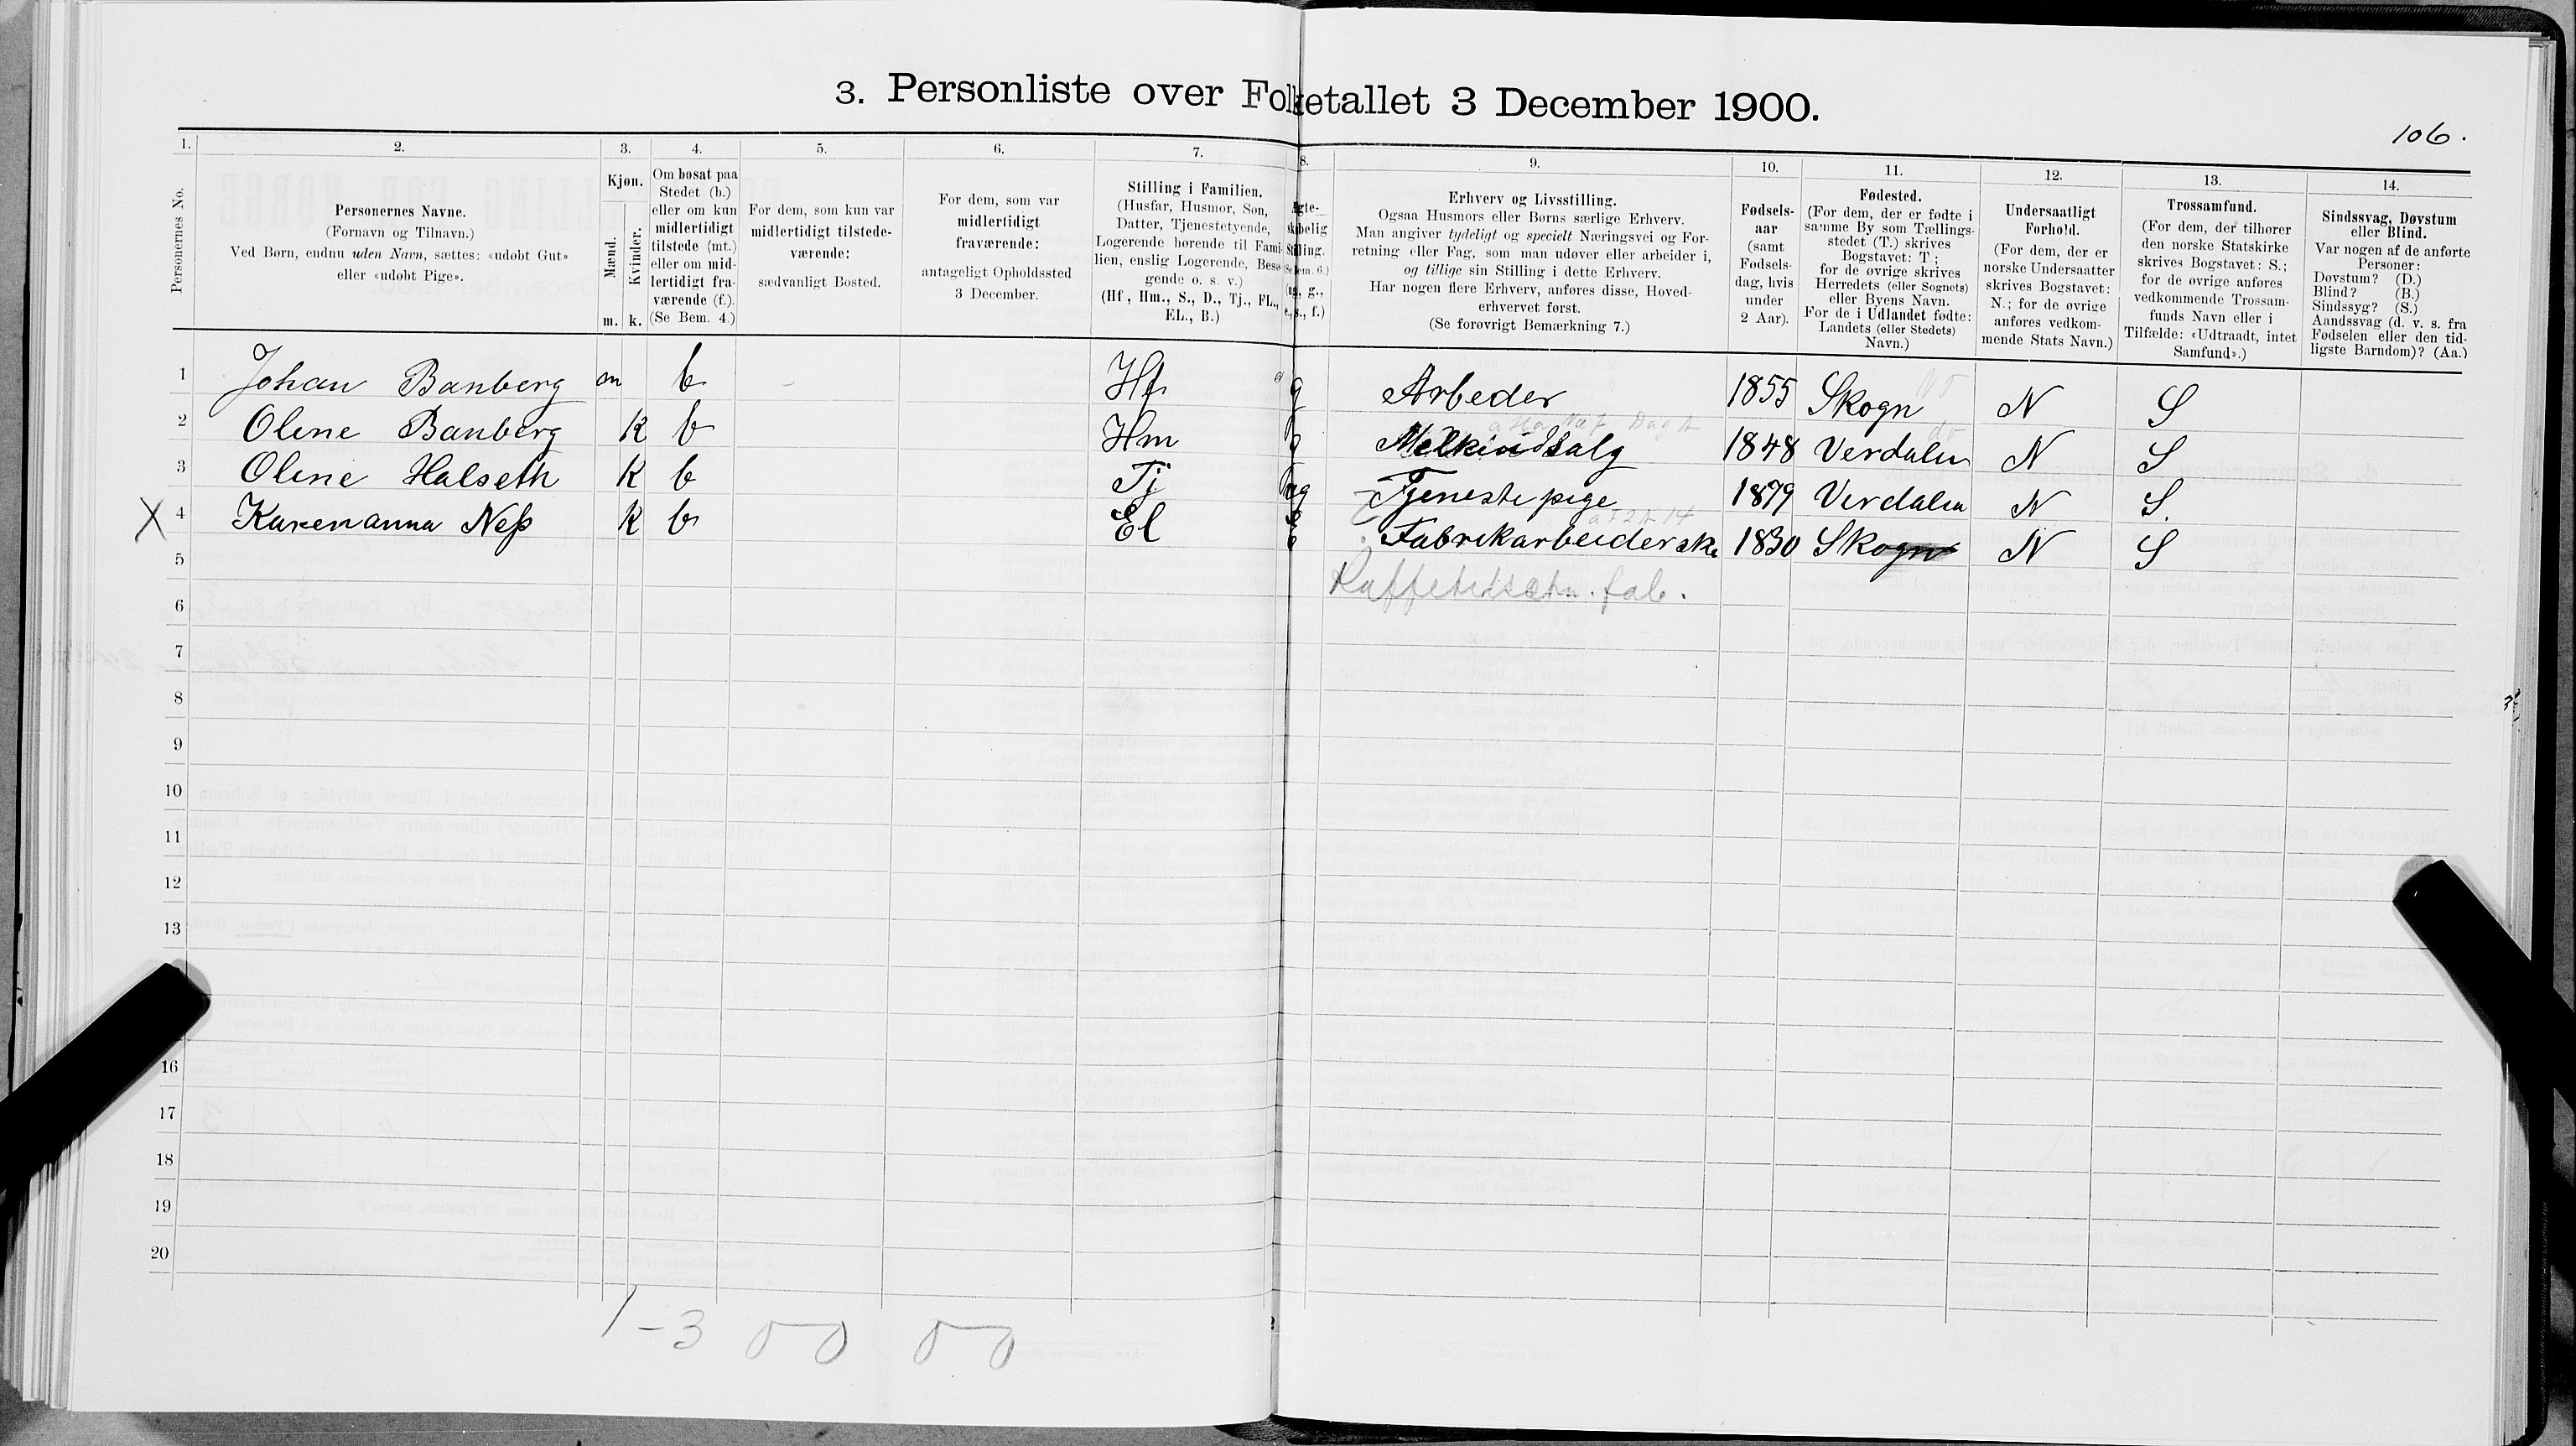 3. Personliste over Folketallet 3 December 1900.
106.
1. 2. 3. 4. 5. 6. 7. 8. 9. 10. 11. 12. 13. 14.
Personernes No.
Personernes Navne.
(Fornavn og Tilnavn.)
Ved Børn, endnu uden Navn, sættes: «udøbt Gut»
eller «udøbt Pige».
Kjøn.
Mænd.
Kvinder.
m. k.
Om bosat paa
Stedet (b.)
eller om kun
midlertidigt
tilstede (mt.)
eller om mid-
lertidigt fra-
værende (f.).
(Se Bem. 4.)
For dem, som kun var
midlertidigt tilstede-
værende:
sædvanligt Bosted.
For dem, som var
midlertidigt
fraværende:
antageligt Opholdssted
3 December.
Stilling i Familien.
(Husfar, Husmor, Søn,
Datter, Tjenestetyende,
Logerende hørende til Fami-
lien, enslig Logerende, Besø-
gende o. s. v.)
(Hf, Hm., S., D., Tj., FL.,
EL., B.)
Erhverv og Livsstilling.
Ogsaa Husmors eller Børns særlige Erhverv.
Man angiver tydeligt og specielt Næringsvei og For-
retning eller Fag, som man udøver eller arbeider i,
og tillige sin Stilling i dette Erhverv.
Har nogen flere Erhverv, anføres disse, Hoved-
erhvervet først.
(Se forøvrigt Bemærkning 7.)
Fødsels-
aar
(samt
Fødsels-
dag, hvis
under
2 Aar).
Fødested.
(For dem, der er fødte i
samme By som Tællings-
stedet (T.) skrives
Bogstavet: T;
for de øvrige skrives
Herredets (eller Sognets)
eller Byens Navn.
For de i Udlandet fødte:
Landets (eller Stedets)
Navn.)
Undersaatligt
Forhold.
(For dem, der er
norske Undersaatter
skrives Bogstavet:
N.; for de øvrige
anføres vedkom-
mende Stats Navn.)
Trossamfund.
(For dem, der tilhører
den norske Statskirke
skrives Bogstavet: S.;
for de øvrige anføres
vedkommende Trossam-
funds Navn eller i
Tilfælde: «Udtraadt, intet
Samfund».)
Sindssvag, Døvstum
eller Blind.
Var nogen af de anførte
Personer:
Døvstum? (D.)
Blind? (B.)
Sindssyg? (S.)
Aandssvag (d. v. s. fra
Fødselen eller den tid-
ligste Barndom)? (Aa.)
1 Johan Banberg m b Hf g Arbeder 1855 Skogn N S
2 Oline Banberg K b Hm g Melkindsalg 1848 Verdalen N S
3 Oline Halseth K b Tj ug Tjenestepige 1879 Verdalen N S.
X 4 Karenanna Neß K b El Fabrikarbeiderske 1830 Skogn N S
5
6
7
8
9
10
11
12
13
16
17
18
19
20
1 - 3 0 0 0 0